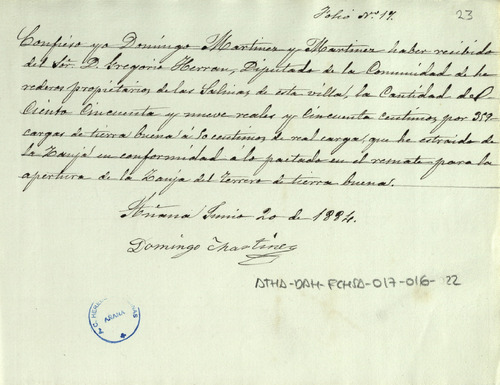 Folio Nº 17.
23
Confieso yo Domingo Martinez y Martinez haber recibido
del Sór. D. Gregorio Herran, Diputado de la Comunidad de he
rederos propietarios de las Salinas de esta villa, la Cantidad de
Ciento Cincuenta y nueve reales y Cincuenta centimos por 319
cargas de tierra buena á 50 centimos de real carga, que he estraido de
la Zanja en conformidad á lo pactado en el remate para la
apertura de la Zanja del Terrero de tierra buena.
Añana Junio 20 de 1884.
Domingo Martinez
ATHA-DAH-FCHSA-017-016-22
AÑANA